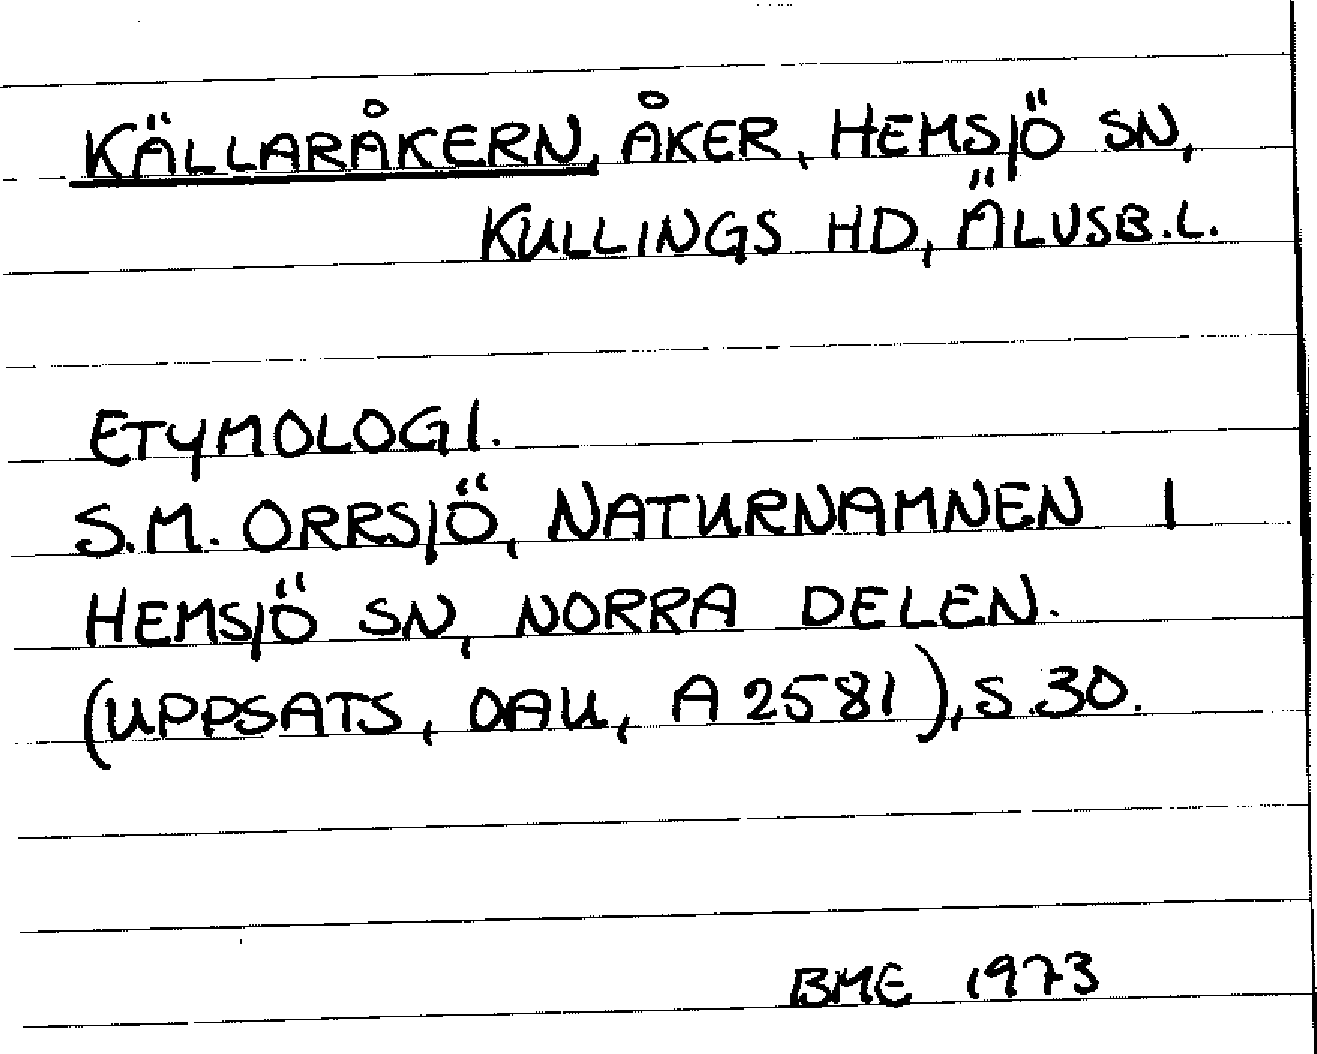 KÄLLARÅKERN, ÅKER, HEMSJÖ SN,
KULLINGS HD, ÄLVSB.L.
ETYMOLOGI.
S.M. ORRSJÖ, NATURNAMNEN I
HEMSJÖ SN, NORRA DELEN.
(UPPSATS, OAU, A 2581), S.30.
BME 1973